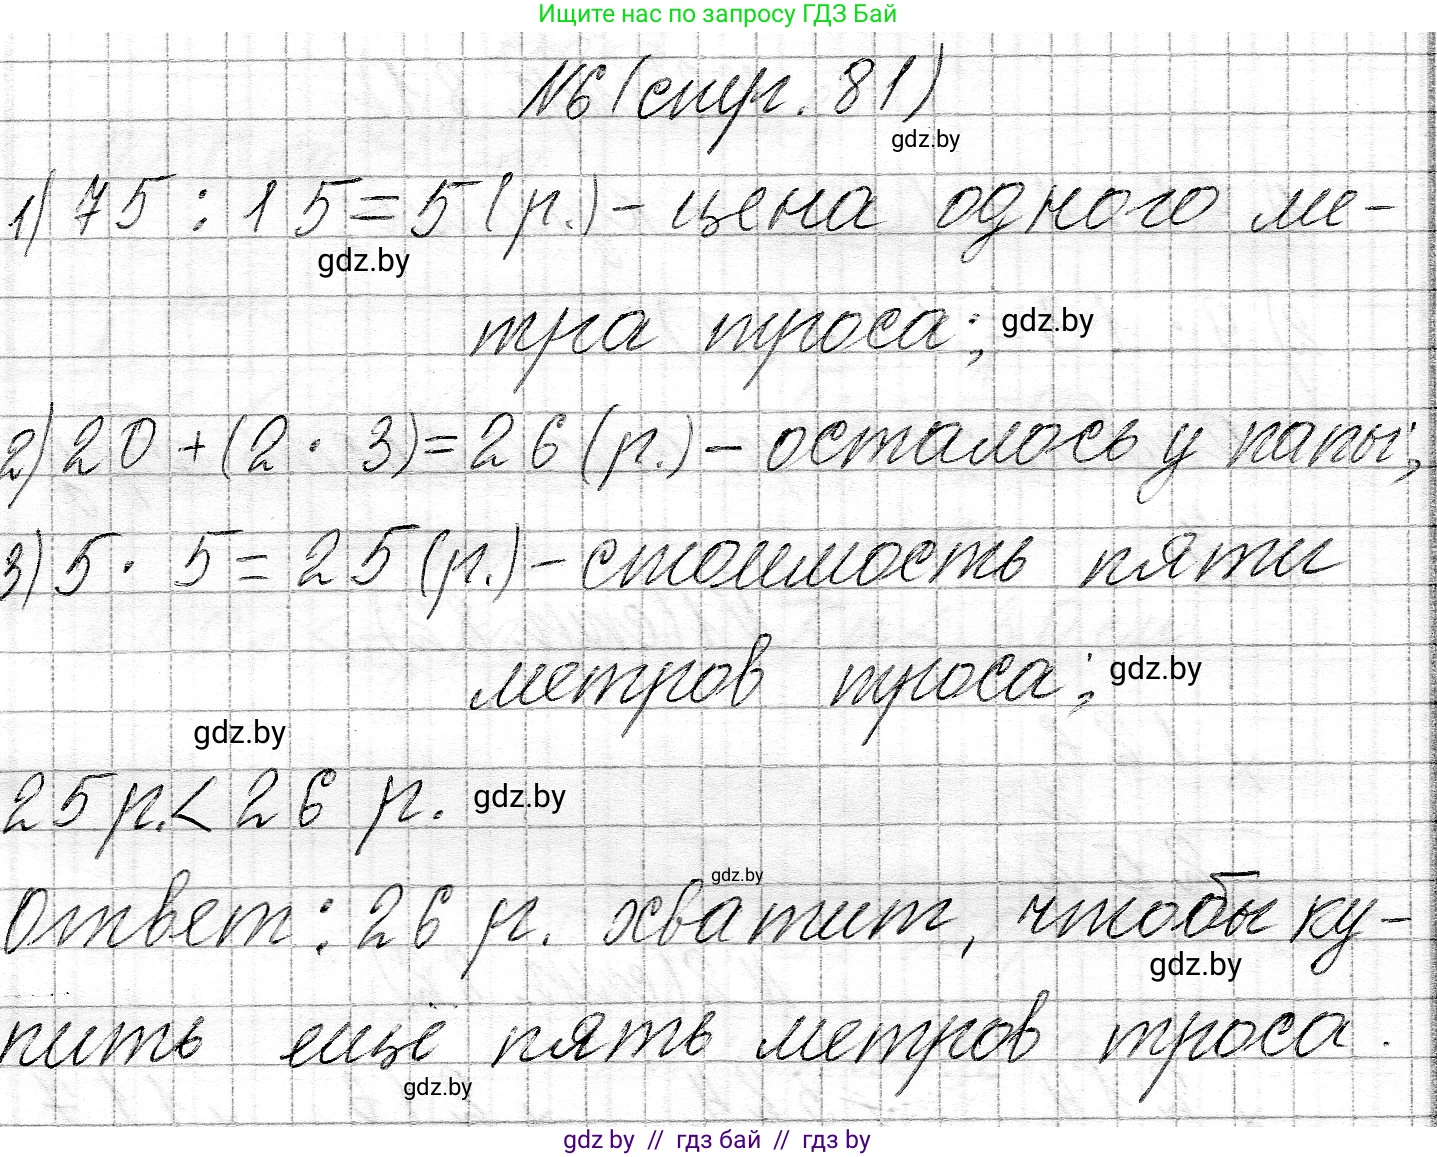 Ищите нас по запросу ГДЗ Бай
№6 (стр. 81)
gdz.by
1) 75 : 15 = 5 (р.) – цена одного ме-
gdz.by
тра троса; gdz.by
2) 20 + (2 · 3) = 26 (р.) – осталось у папы;
3) 5 · 5 = 25 (р.) – стоимость пяти
метров троса; gdz.by
gdz.by
25 р. < 26 р. gdz.by
gdz.by
Ответ: 26 р. хватит, чтобы ку-
gdz.by
пить ещё пять метров троса.
gdz.by
gdz by // гдз бай // гдз by